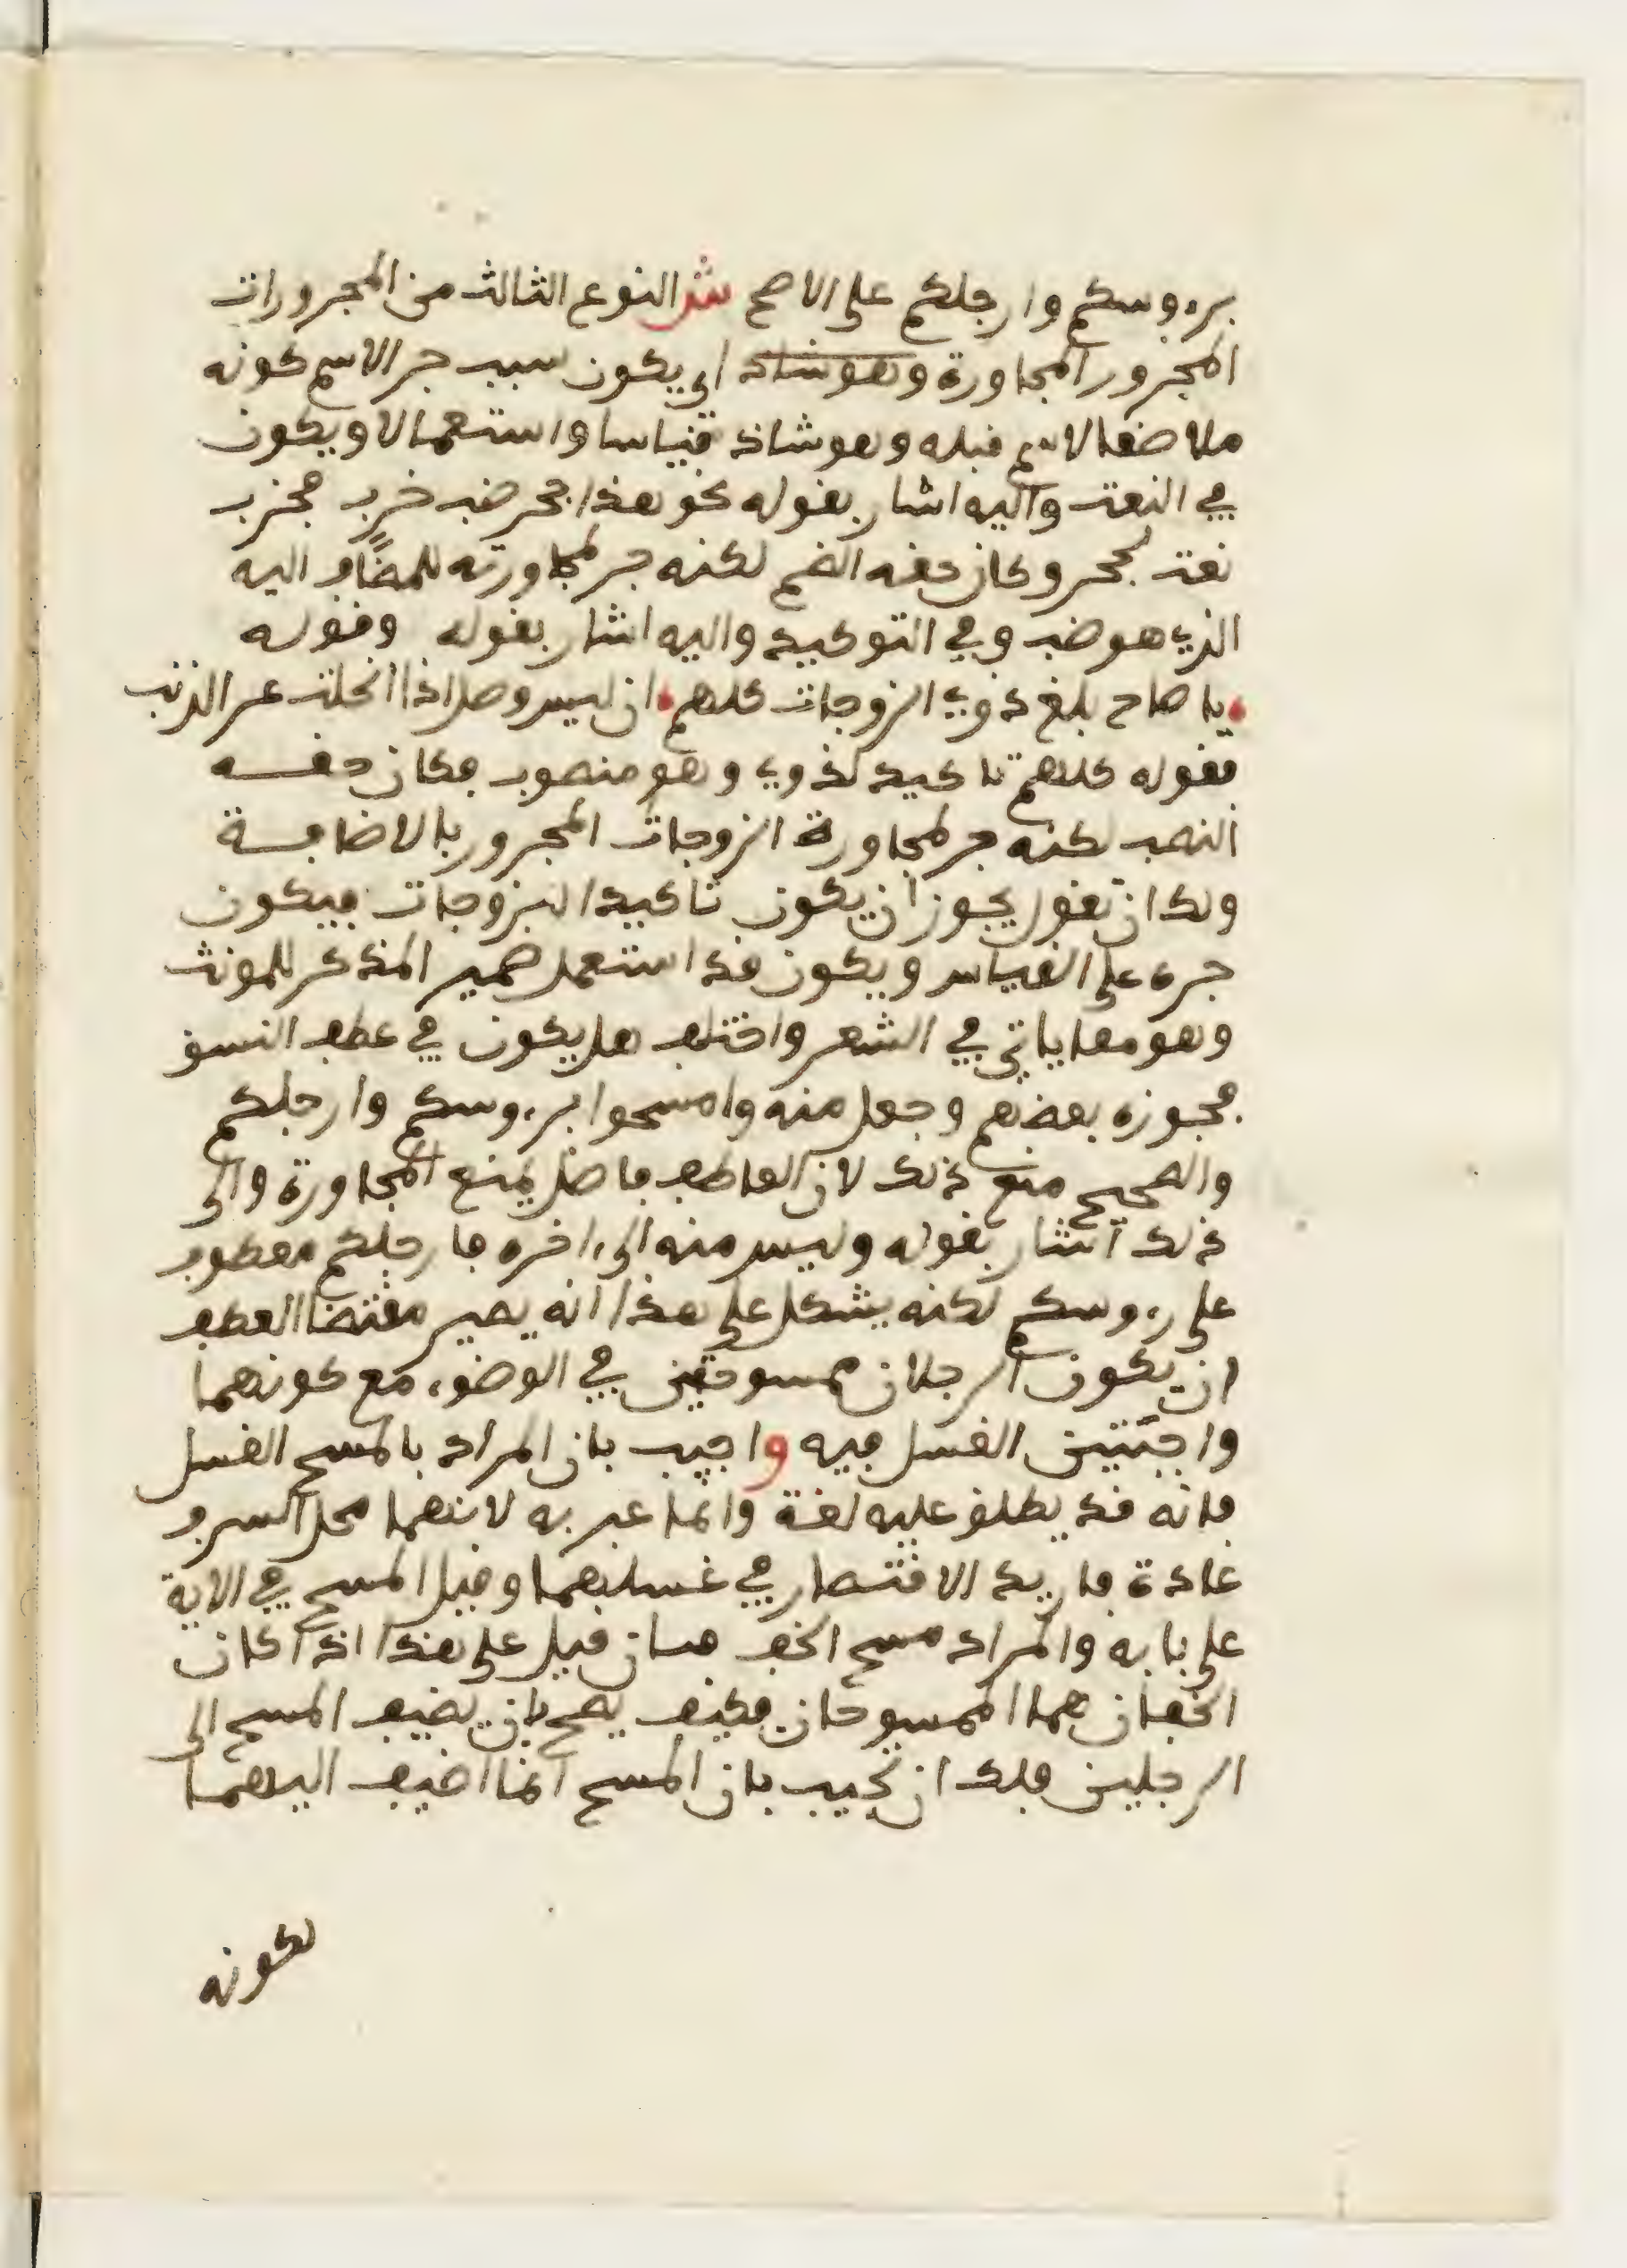 برءوسكم وارجلكم على الاصح ش النوع الثالث من المجرورات
المجرور المجاورة وهو شاذ اي يكون سبب جر الاسم كونه
ملاصقا لاسم قبله وهو شاذ قياسا واستعمالا ويكون
في النعت واليه اشار بقوله نحو هذا جحر ضب خرب فخرب
نعت لجحر وكان حقه الضم لكنه جر لمجاورته للمضاف اليه
الذي هو ضب وفي التوكيد واليه اشار بقوله وقوله
يا صاح بلغ ذوي الزوجات كلهم ان ليس وصل اذا انحلت عر الذنب
فقوله كلهم تاكيد لذوي وهو منصوب فكان حقه
النصب لكنه جر لمجاورة الزوجات المجرور بالاضافة
ولك ان تقول يجوز ان يكون تاكيدا للزوجات فيكون
جره على القياس ويكون قد استعمل ضمير المذكر للمونث
وهو مما ياتي في الشعر واختلف هل يكون في عطف النسق
فجوزه بعضهم وجعل منه وامسحوا برءوسكم وارجلكم
والصحيح منع ذلك لان العاطف فاصل يمنع المجاورة والى
ذلك اشار بقوله وليس منه الى ءاخره فارجلكم معطوف
على رءوسكم لكنه يشكل على هذا انه يصير مقتضا العطف
ان يكون الرجلان ممسوحتين في الوضوء مع كونهما
واجبتين الغسل فيه واجيب بان المراد بالمسح الغسل
فانه قد يطلق عليه لغة وانما عبر به لانهما محل السرف
عادة فاريد الاقتصار في غسلهما وقيل المسح في الاية
على بابه والمراد مسح الخف فان قيل على هذا اذا كان
الخفان هما الممسوحان فكيف يصح بان يضيف المسح الى
الرجلين فلك ان تجيب بان المسح انما اضيف اليهما
لكونه